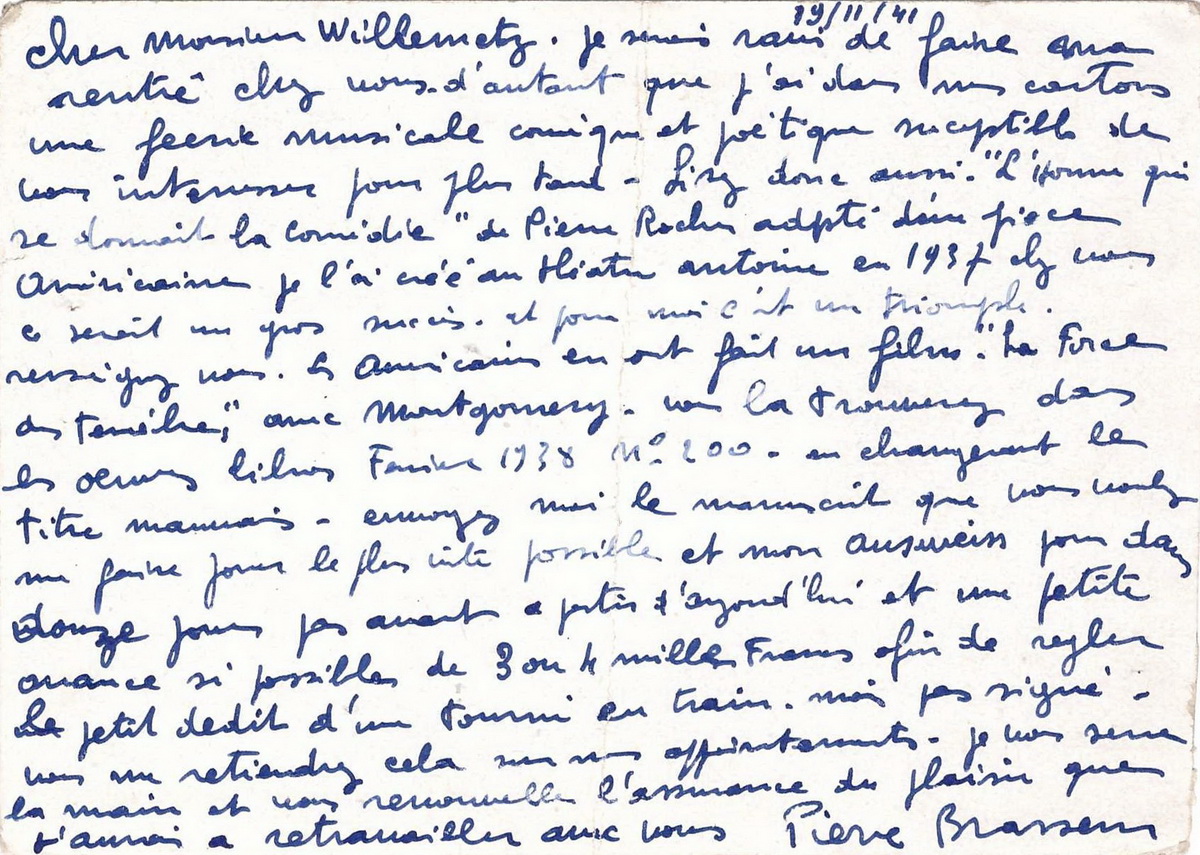 19/11/41
cher Monsieur Willemetz. je serais ravi de faire ma
rentré chez vous. d'autant que j'ai dans mes cartons
une feerie musicale comique et poëtique suceptible de
vous interesser pour plus tard - Lisez donc aussi. "L'Homme qui
se donnait la Comédie" de Pierre Rocher adpté d'une piece
Américaine je l'ai créé au théatre antoine en 1937 chez vous
ce serait un gros succès. et pour moi c'est un triomphe.
renseignez vous. les Américains en ont fait un film. "La Force
des Tenèbres" avec Montgomery. vous la trouverez dans
les oeuvres libres Fevrier 1938 N° 200 - en changeant le
titre mauvais - envoyez moi le manuscrit que vous voulez
me faire jouer le plus vite possible et mon ausweiss pour dans
douze jours pas avant a partir d'aujourd'hui et une petite
avance si possible de 3 ou 4 mille Francs afin de regler
le petit dedit d'une tourné en train. mais pas signé -
vous me retiendrez cela sur mes appointements - je vous serre
la main et vous renouvelle l'assurance du plaisir que
j'aurai a retravailler avec vous Pierre Brasseur